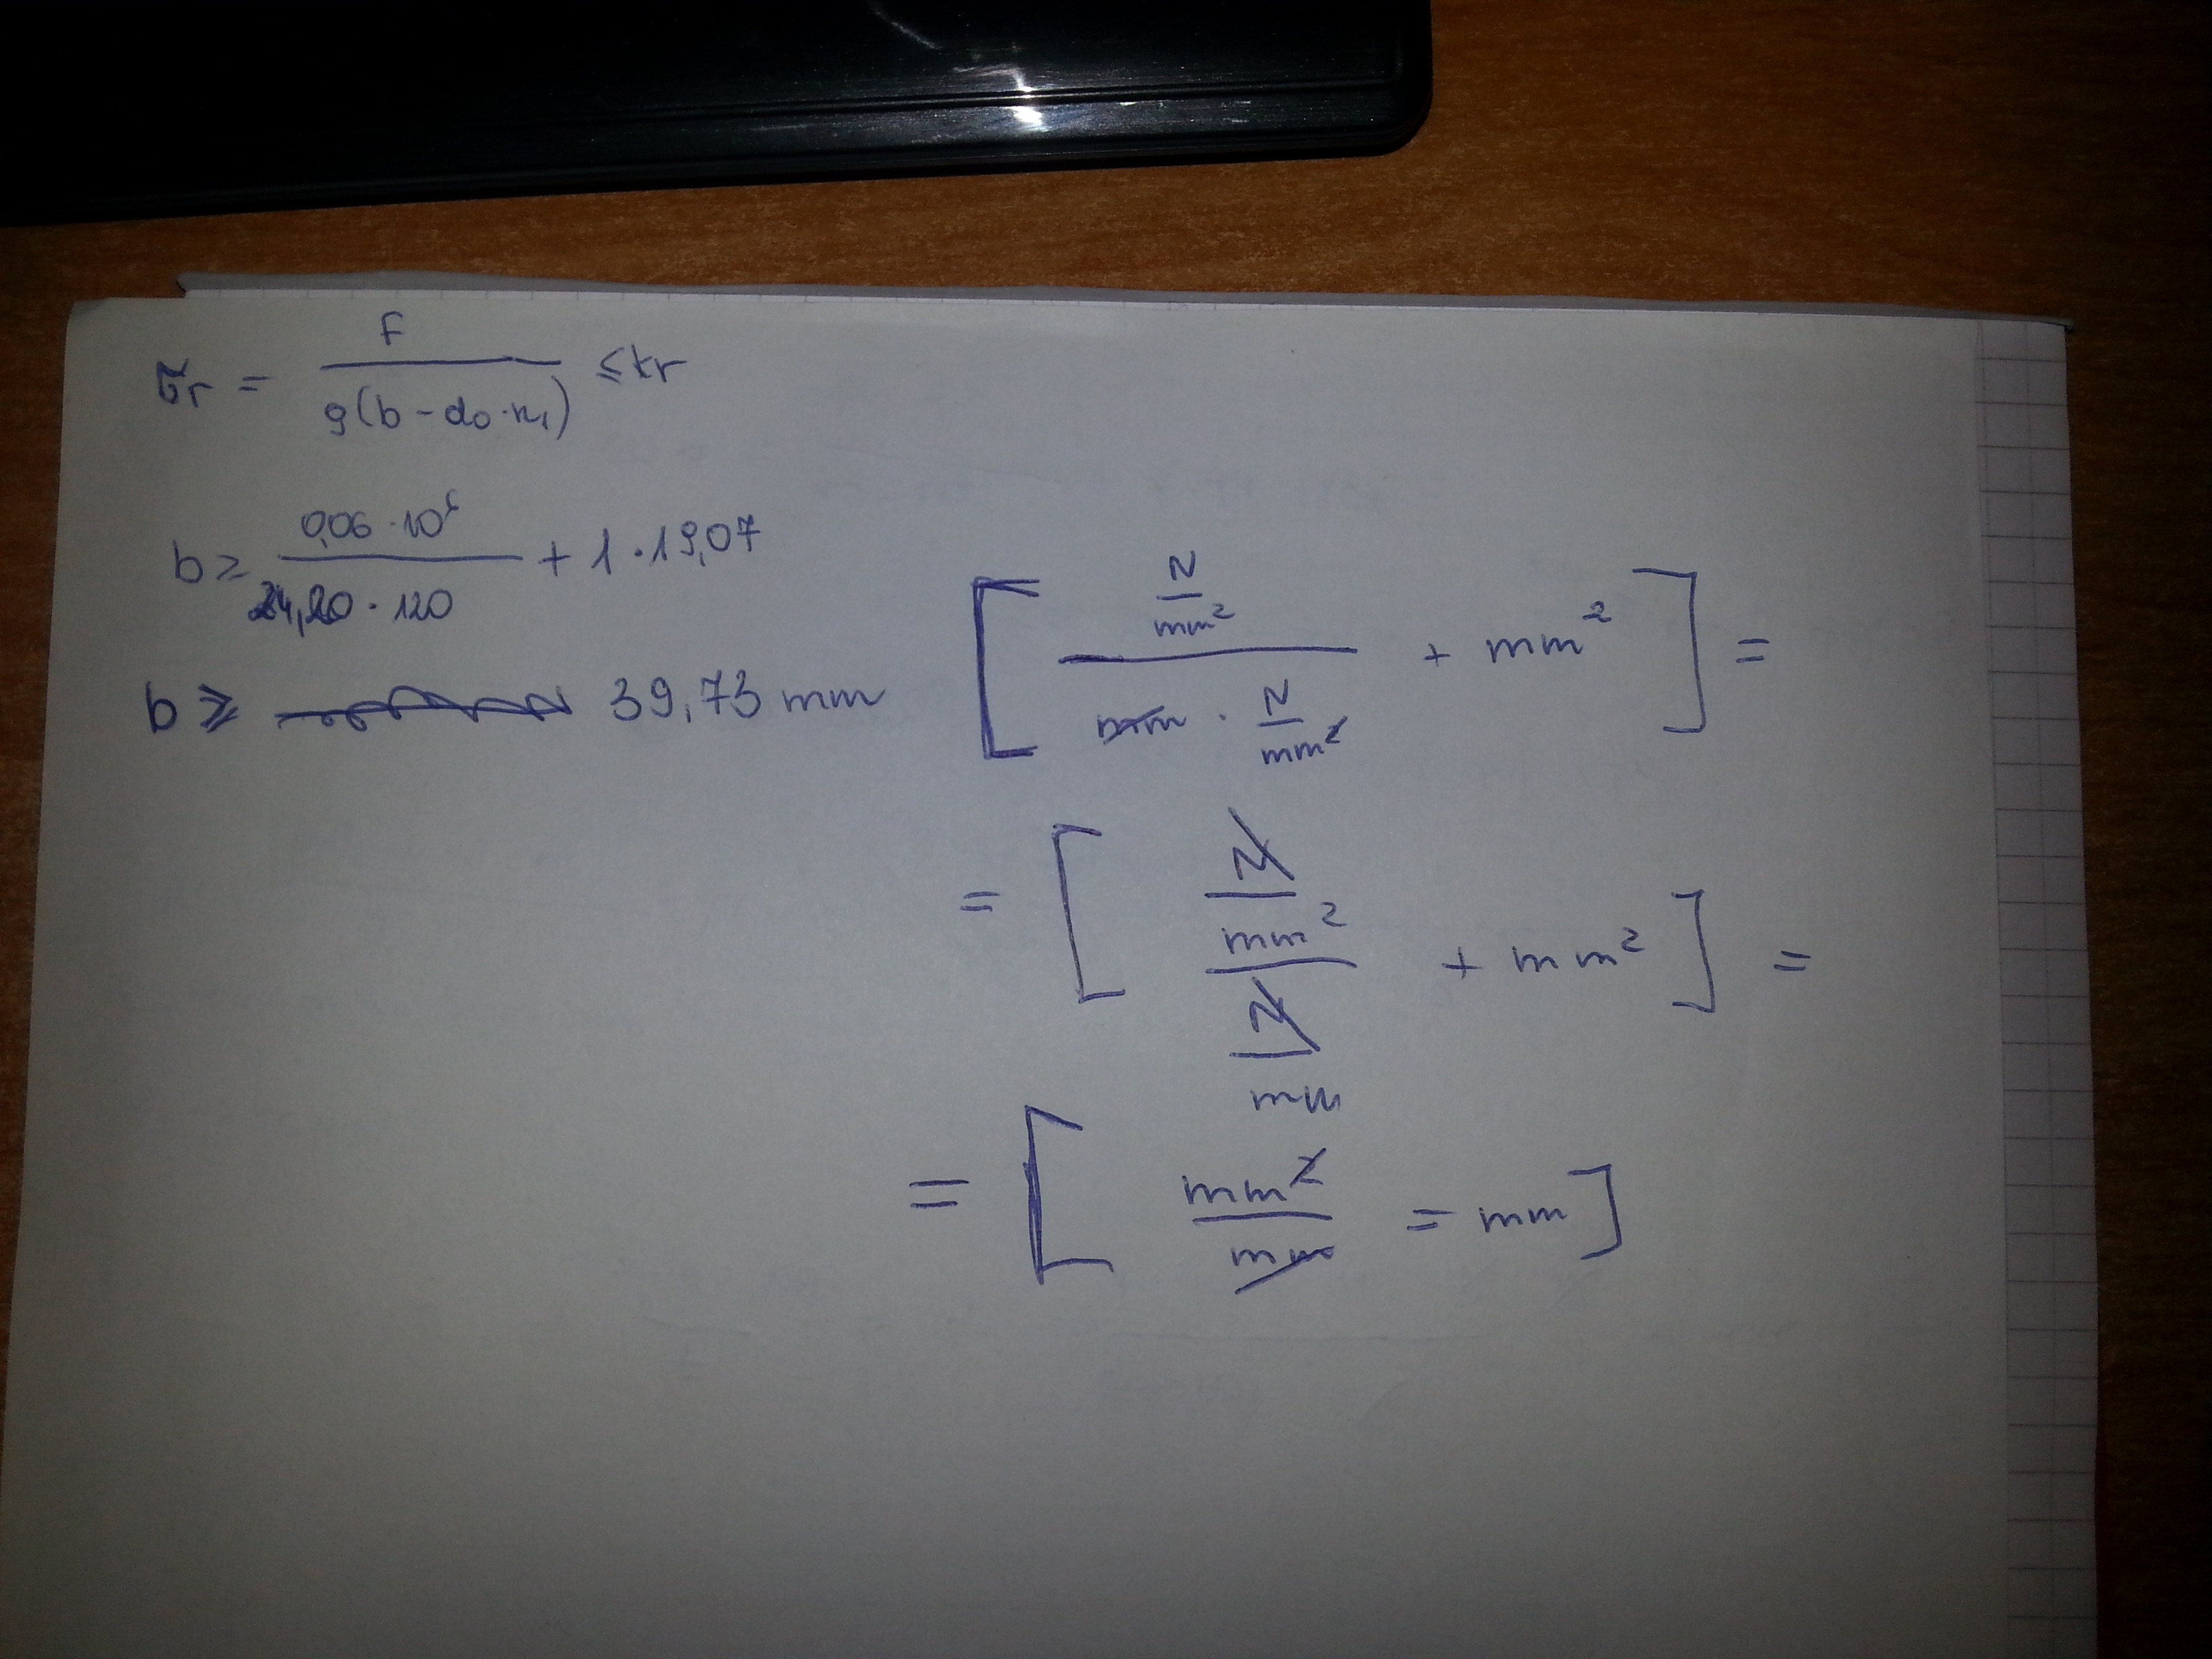 σr = F / g(b - d₀ · n₁) ≤ kr
b ≥ 0,06 · 10⁶ / 24,20 · 120 + 1 · 19,07
b ≥ 39,73 mm
[ N/mm² / mm · N/mm² + mm² ] =
= [ N/mm² / N/mm + mm² ] =
= [ mm² / mm = mm ]